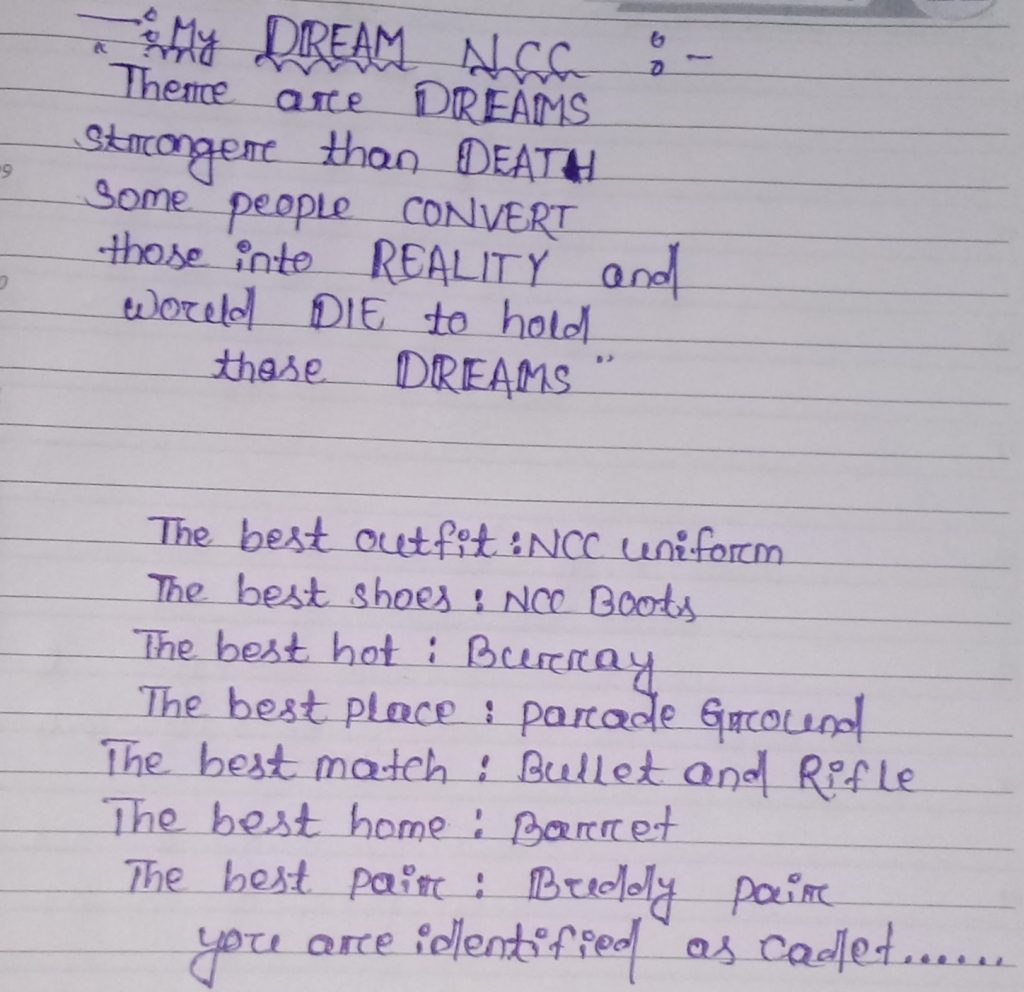 My DREAM NCC :-
There are DREAMS
stronger than DEATH
some people CONVERT
those into REALITY and
would DIE to hold
those DREAMS"
The best outfit : NCC uniform
The best shoes : NCC Boots
The best hat : Burray
The best place : parade Ground
The best match : Bullet and Rifle
The best home : Barret
The best pair : Buddy pair
you are identified as cadet......